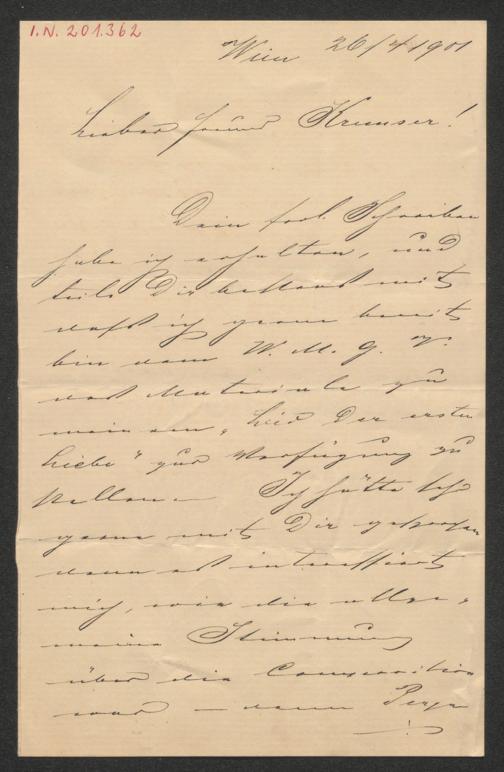 I.N. 201.362
Wien 26/4 1901
Lieber Freund Kremser!
Dein frdl. Schreiben
habe ich erhalten, und
teile Dir bestens mit
daß ich gerne bereit
bin dem W. M. G. V.
das Materiale zu
meinem „Lied der ersten
Liebe" zur Verfügung zu
stellen — Ich hätte sehr
gerne mit Dir gesprochen
denn es interessiert
mich, wie die allge-
meine Stimmung
über die Composition
war — denn